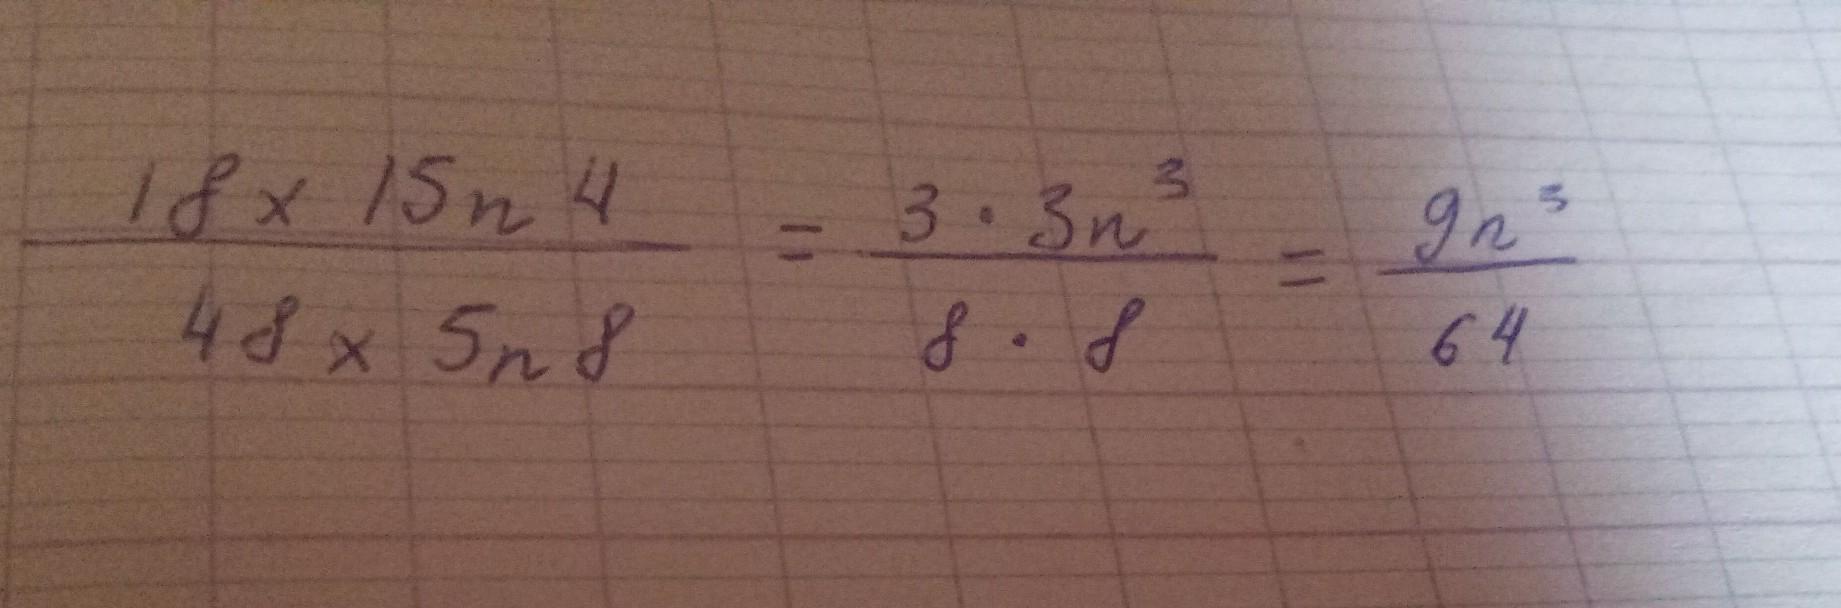 18 x 15n 4 / 48 x 5n 8 = 3 · 3n³ / 8 · 8 = 9n³ / 64